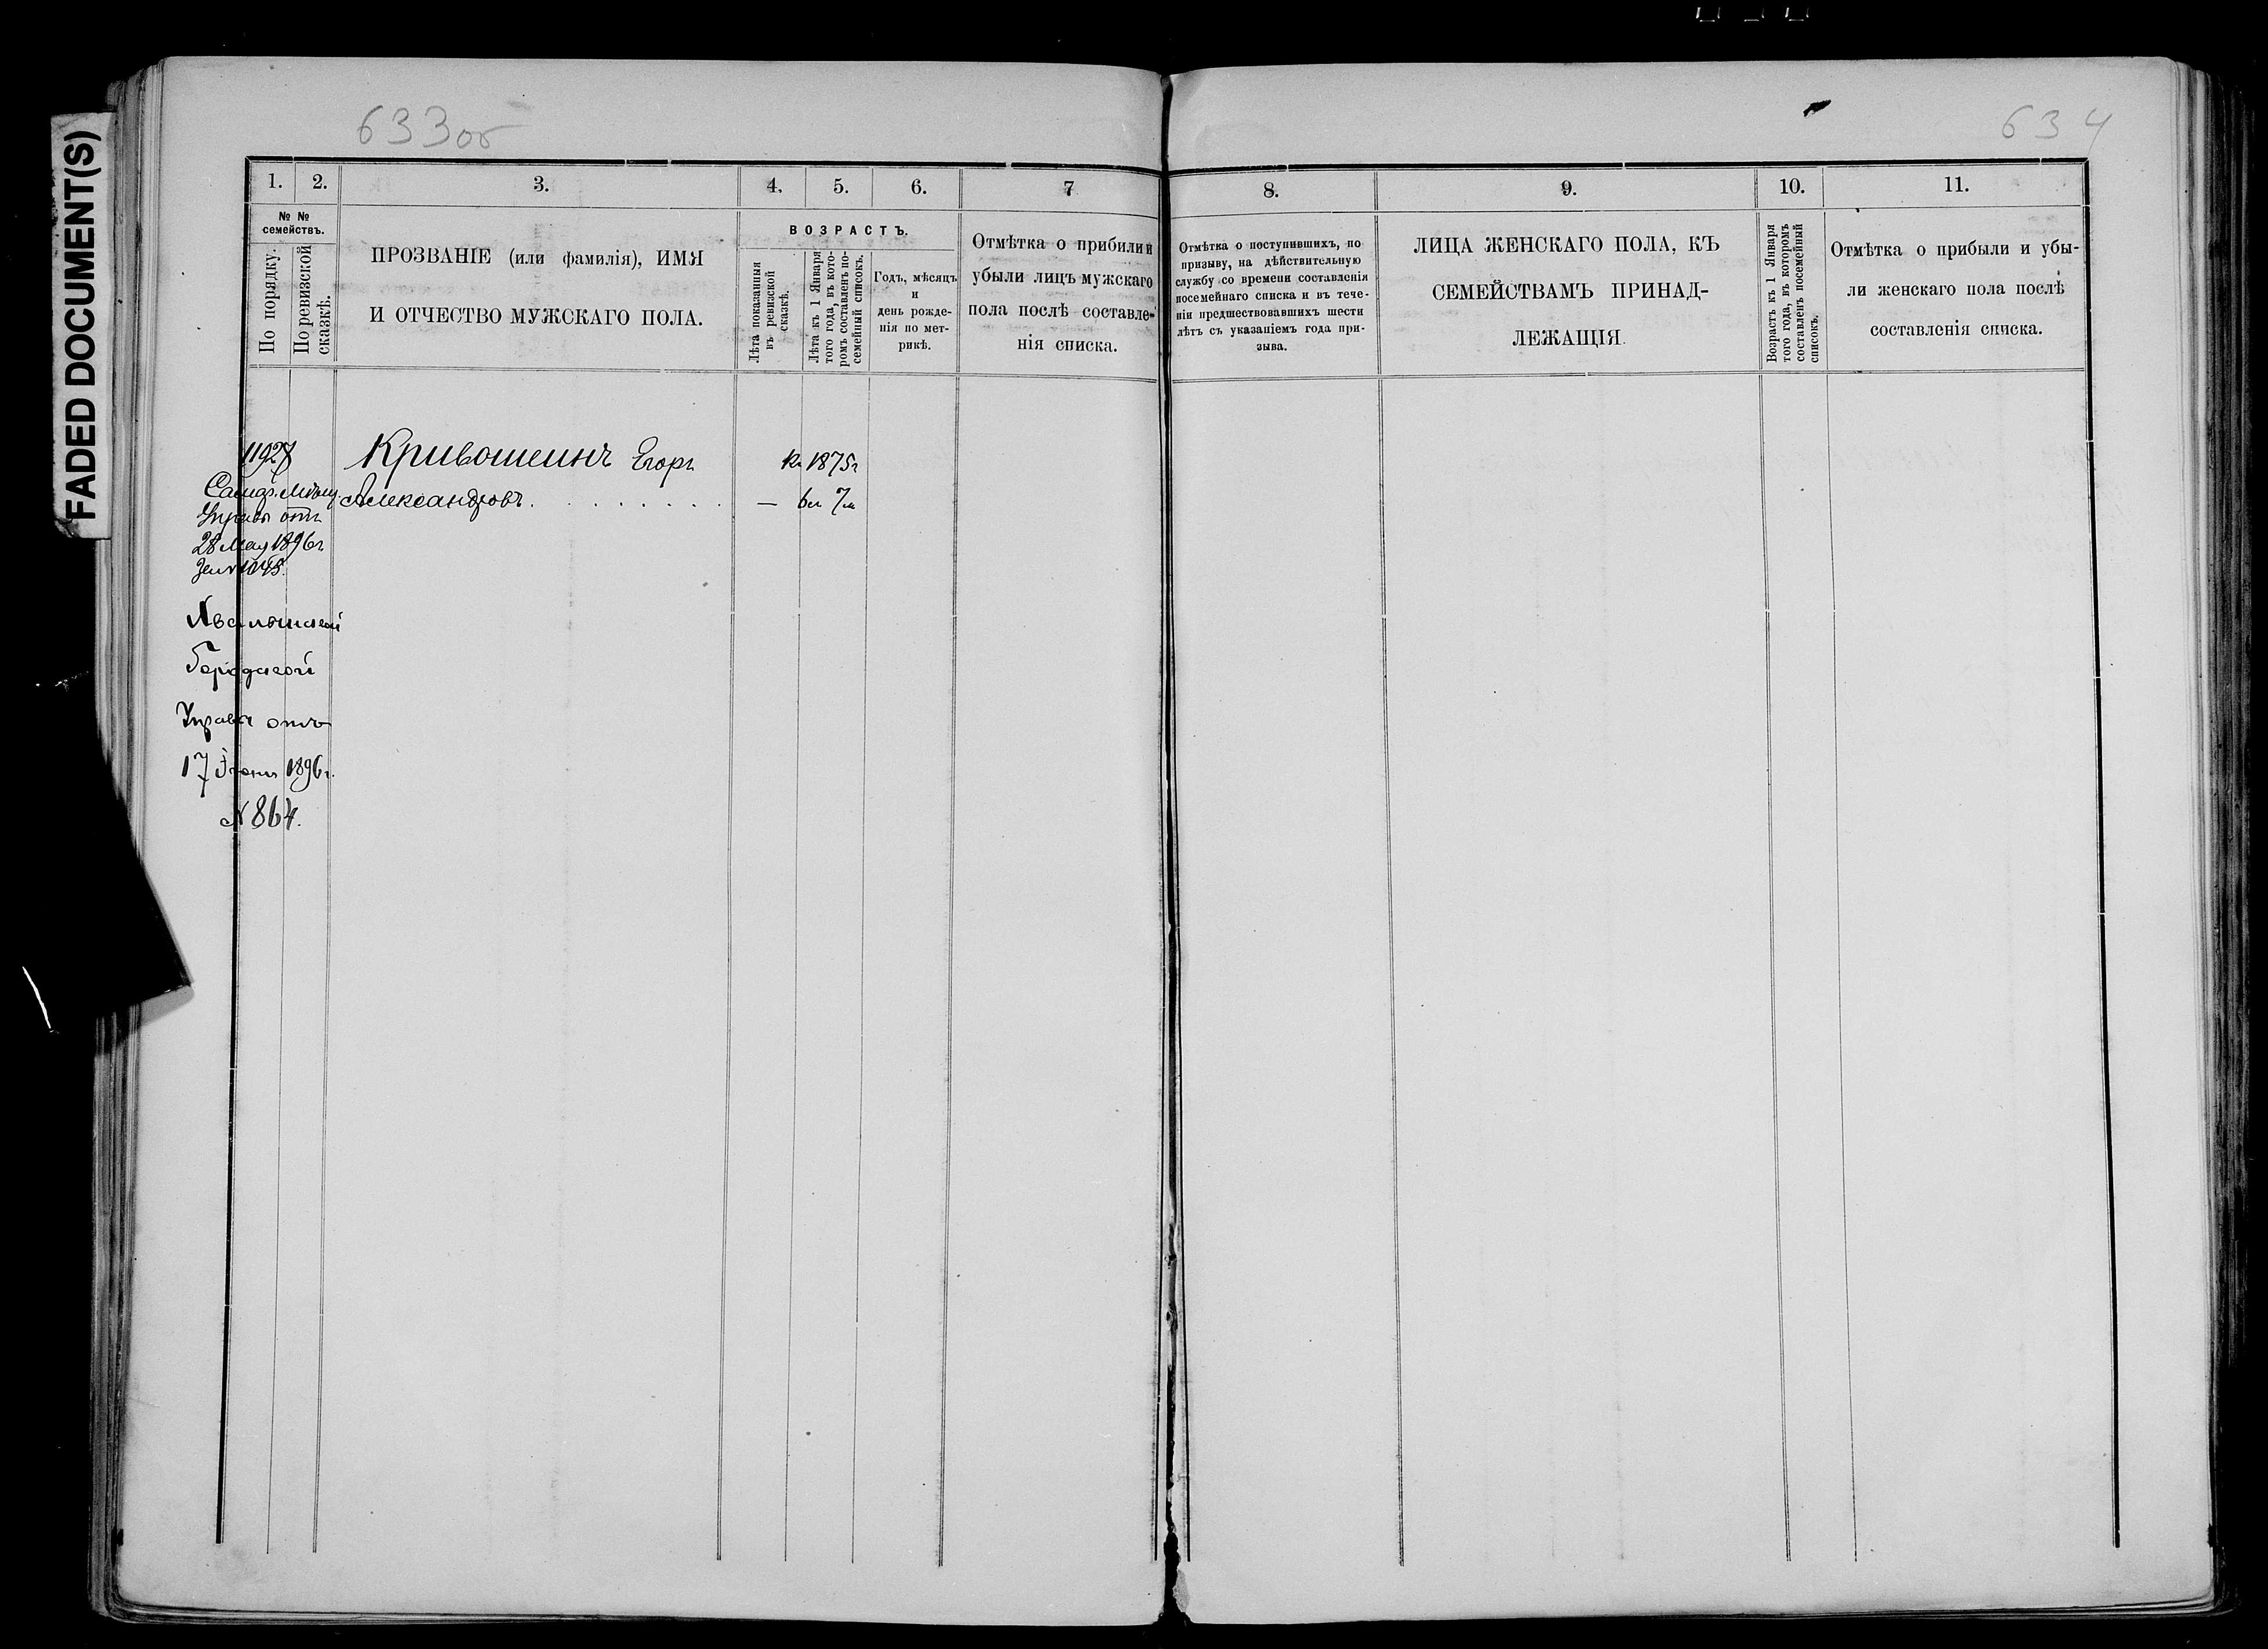 FADED DOCUMENT(S)
633об
634
1.
2.
3.
4.
5.
6.
7
№ №
семействъ.
По порядку.
По ревизской
сказкѣ.
ПРОЗВАНІЕ (или фамилія), ИМЯ
И ОТЧЕСТВО МУЖСКАГО ПОЛА.
ВОЗРАСТЪ.
Лѣта показанныя
въ ревизской
сказкѣ.
Лѣта къ 1 Января
того года, въ кото-
ромъ составленъ по-
семейный списокъ.
Годъ, мѣсяцъ
и
день рожде-
нія по мет-
рикѣ.
Отмѣтка о прибыли и
убыли лицъ мужскаго
пола послѣ составле-
нія списка.
8.
9.
10.
11.
Отмѣтка о поступившихъ, по
призыву, на дѣйствительную
службу со времени составленія
посемейнаго списка и въ тече-
ніи предшествовавшихъ шести
лѣтъ съ указаніемъ года при-
зыва.
ЛИЦА ЖЕНСКАГО ПОЛА, КЪ
СЕМЕЙСТВАМЪ ПРИНАД-
ЛЕЖАЩІЯ.
Возрастъ къ 1 Января
того года, въ которомъ
составленъ посемейный
списокъ.
Отмѣтка о прибыли и убы-
ли женскаго пола послѣ
составленія списка.
Кривошеинъ Егоръ
1875г
Александровъ. — 6м 7м
Управы отъ
28 Мая 1896г
Хвалынской
Городской
Управы отъ
17 Іюня 1896г.
№ 864.